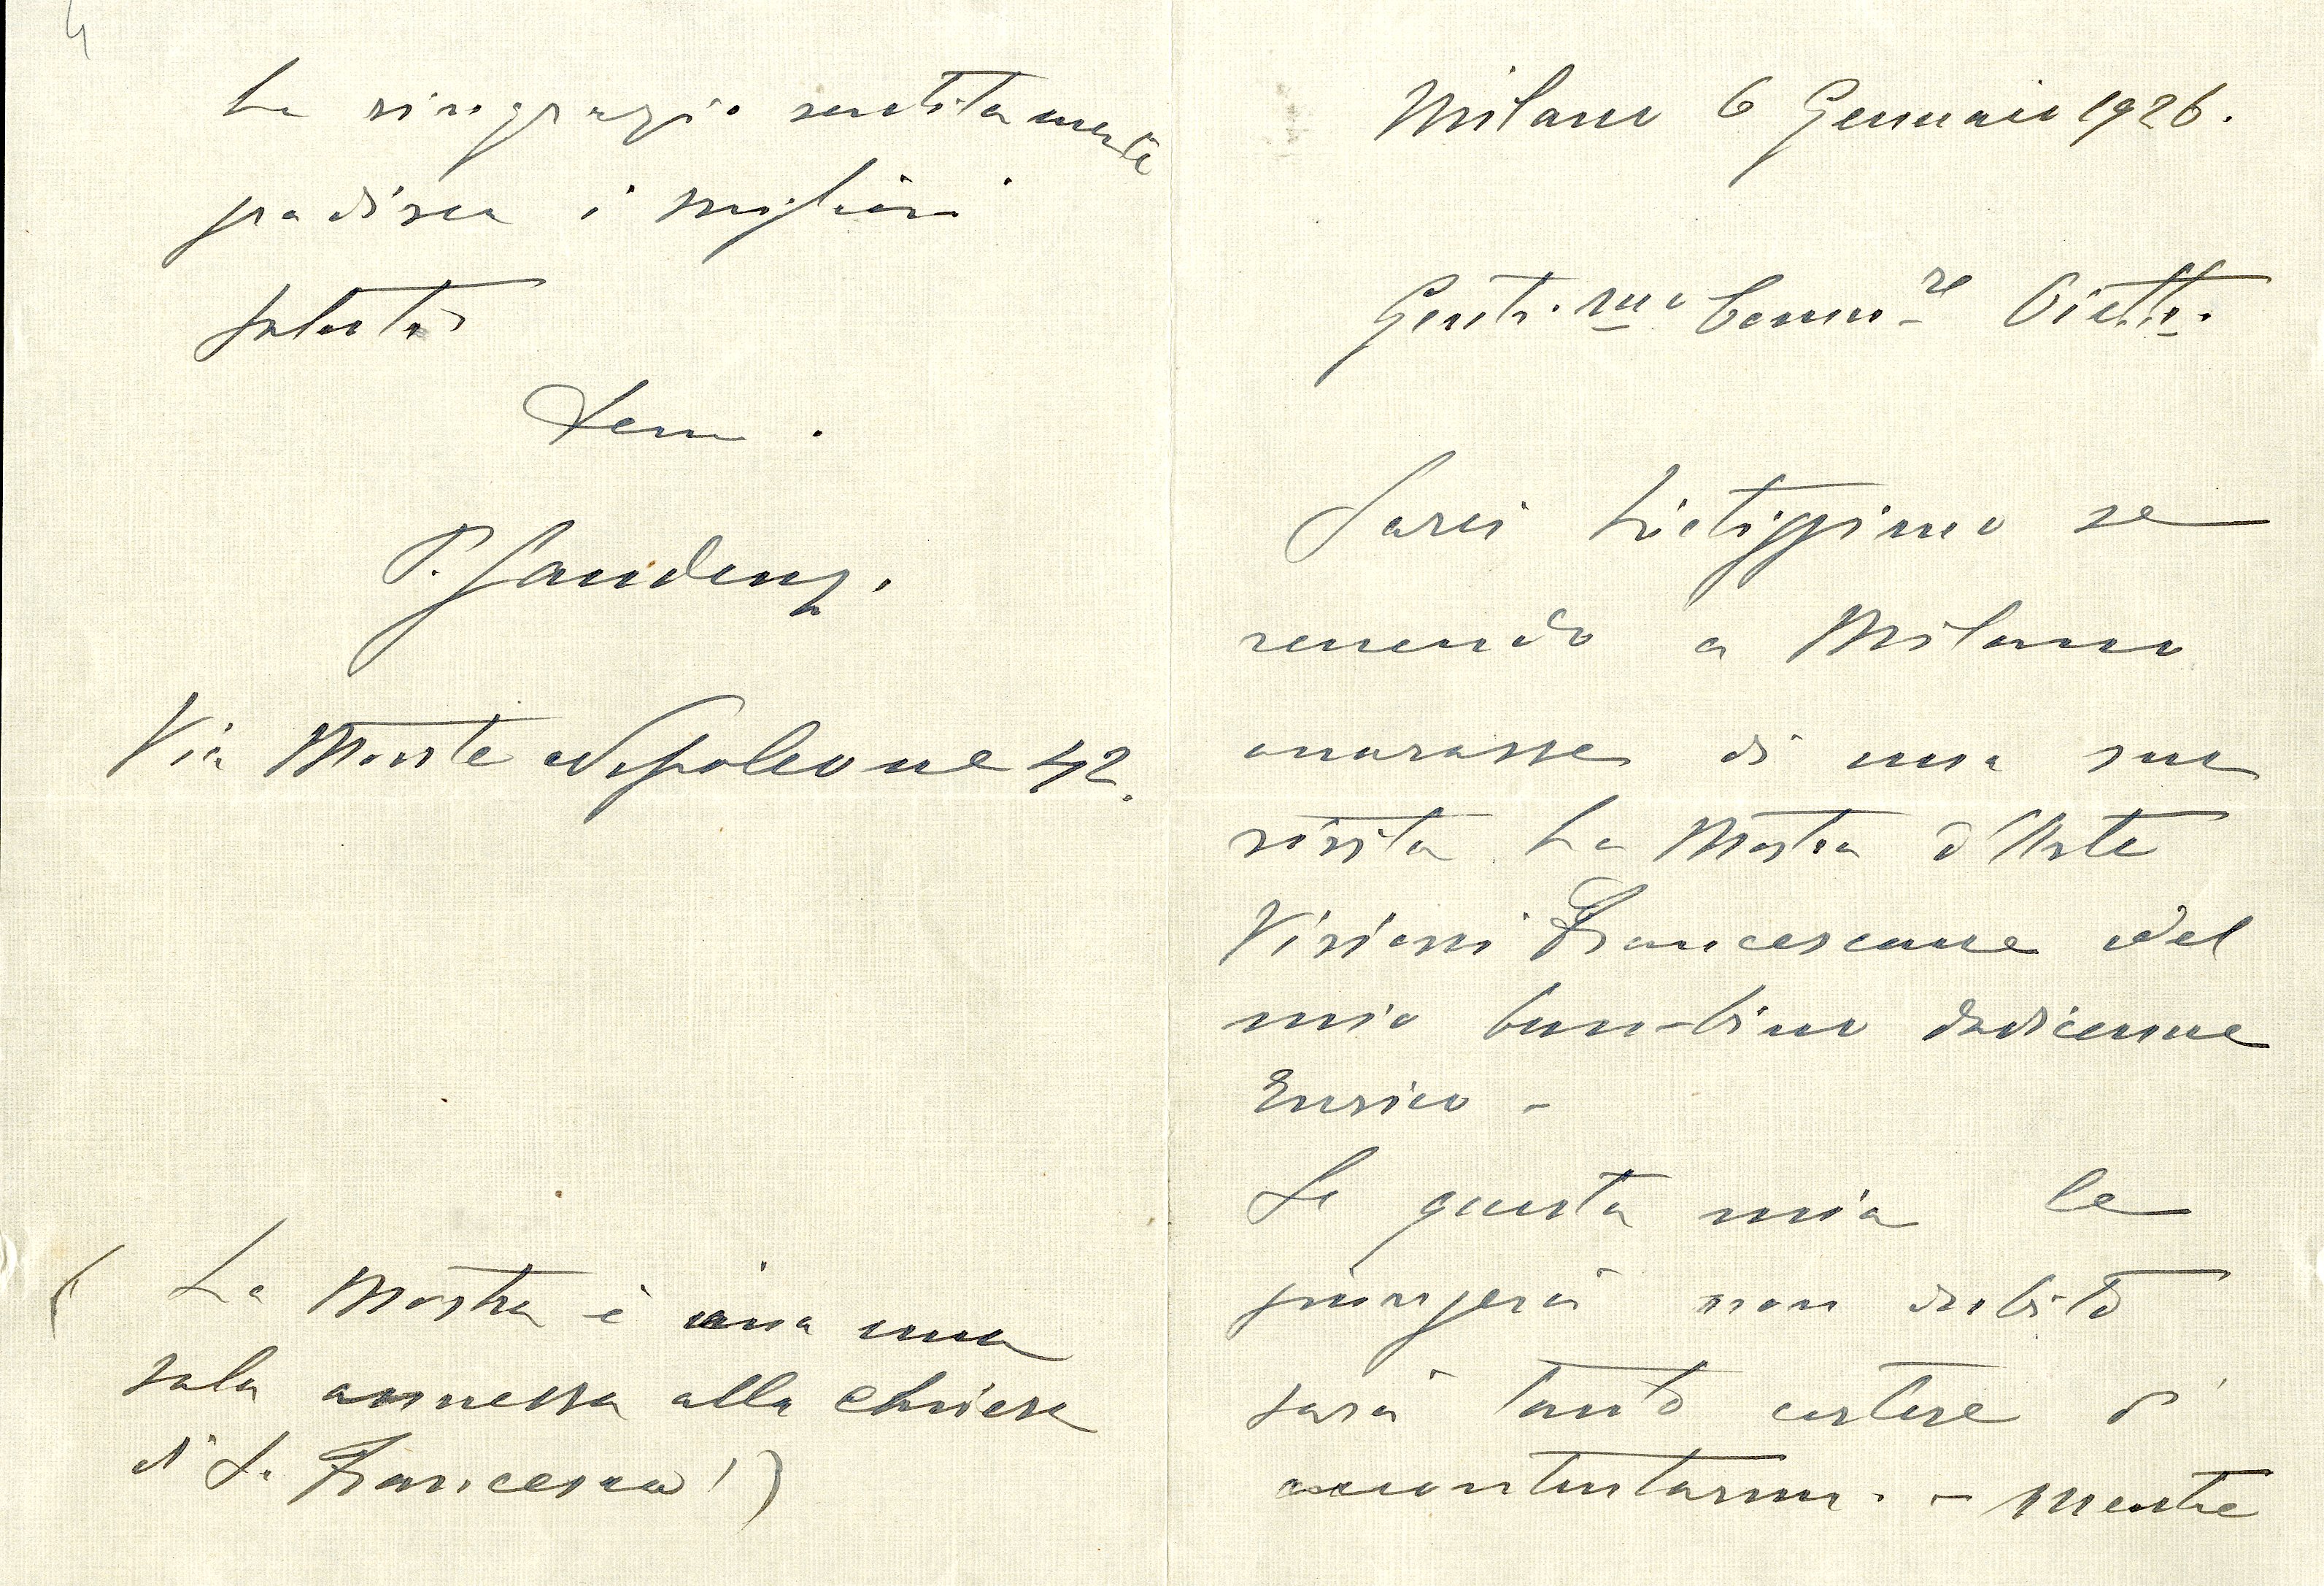 Milano 6 Gennaio 1926.
Genti.mo Comm.re Oietti.
Sarei lietissimo se
venendo a Milano
onorasse di una sua
visita La Mostra d'Arte
Visioni Francescane del
mio bambino dodicenne
Enrico -
Se questa mia le
giungerà non dubito
sarà tanto cortese d'
accontentarmi. - Mentre
La ringrazio sentitamente
gradisca i migliori
saluti
P. Gaudenzi
Via Monte Napoleone 42.
( La Mostra è in una
sala annessa alla Chiesa
di S. Francesco!)
4